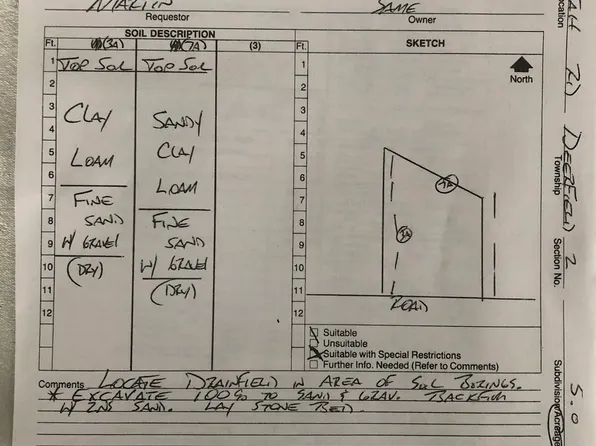 MARTIN SAME
Requestor Owner
SOIL DESCRIPTION
Ft. (3A) (7A) (3) Ft. SKETCH
1 TOP SOIL TOP SOIL 1
2 2
North
3 CLAY SANDY 3
4 4
5 LOAM CLAY 5
6 LOAM 6
7 FINE 7
7A
8 SAND FINE 8
3A
9 W/ GRAVEL SAND 9
10 (DRY) W/ GRAVEL 10
11 (DRY) 11
ROAD
12 12
Suitable
Unsuitable
Suitable with Special Restrictions
Further Info. Needed (Refer to Comments)
Comments LOCATE DRAINFIELD IN AREA OF SOIL BORINGS.
* EXCAVATE 100% TO SAND & GRAV. BACKFILL
W/ 2NS SAND. LAY STONE BED.
ocation RD
Township DEERFIELD
Section No. 2
Subdivision/Acreage 5.0